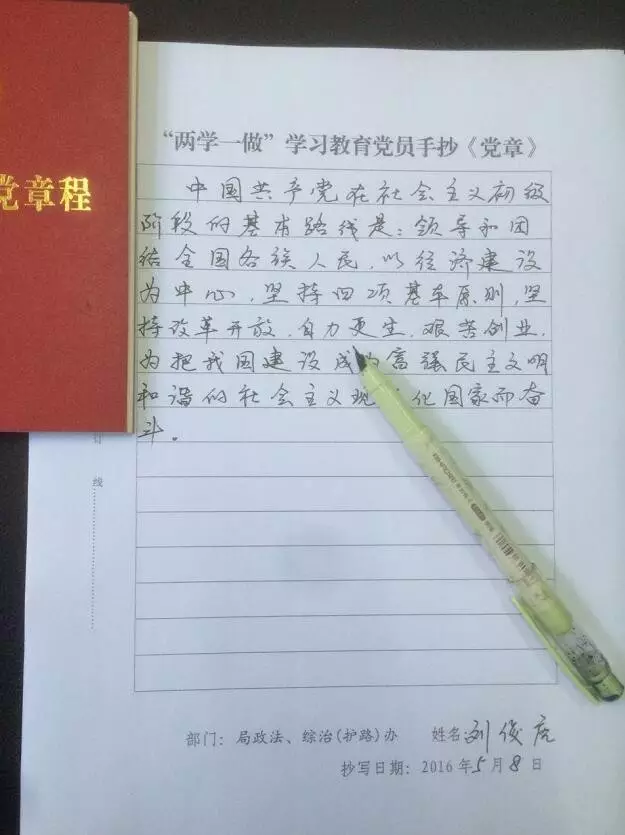 党章程
“两学一做”学习教育党员手抄《党章》
中国共产党在社会主义初级
阶段的基本路线是：领导和团
结全国各族人民，以经济建设
为中心，坚持四项基本原则，坚
持改革开放，自力更生，艰苦创业，
为把我国建设成为富强民主文明
和谐的社会主义现化国家而奋
斗。
订
线
部门：局政法、综治(护路)办 姓名刘俊
抄写日期：2016年5月8日